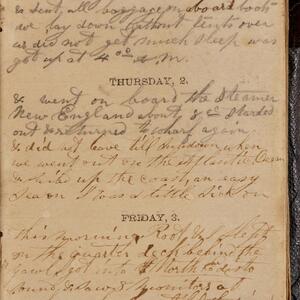 & sent all baggage on board boat
we lay down without tents over
us did not get much sleep was
got up at 4 o.c. A.M.
THURSDAY, 2.
& went on board the Steamer
New England about 8 oc started
out & returned to wharf again
& did not leave till sundown when
we went out on the Atlantic Ocean
& up the coast an easy
Sea on I was a little Sick on
FRIDAY, 3.
This morning
the quarter deck behind the
yawl got into North
Sound & saw